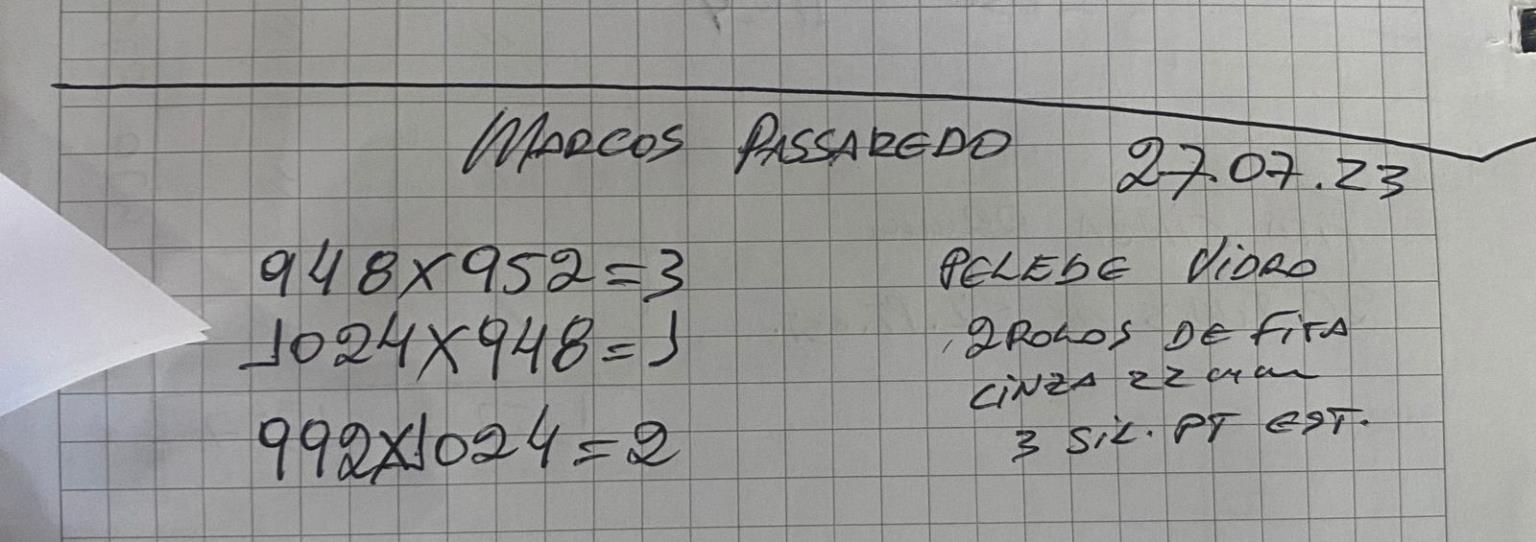 MARCOS PASSAREDO 27.07.23
948X952=3
1024X948=1
992X1024=2
PELEDE VIDRO
2 ROLOS DE FITA
CINZA 22 mm
3 SIL. PT EST.